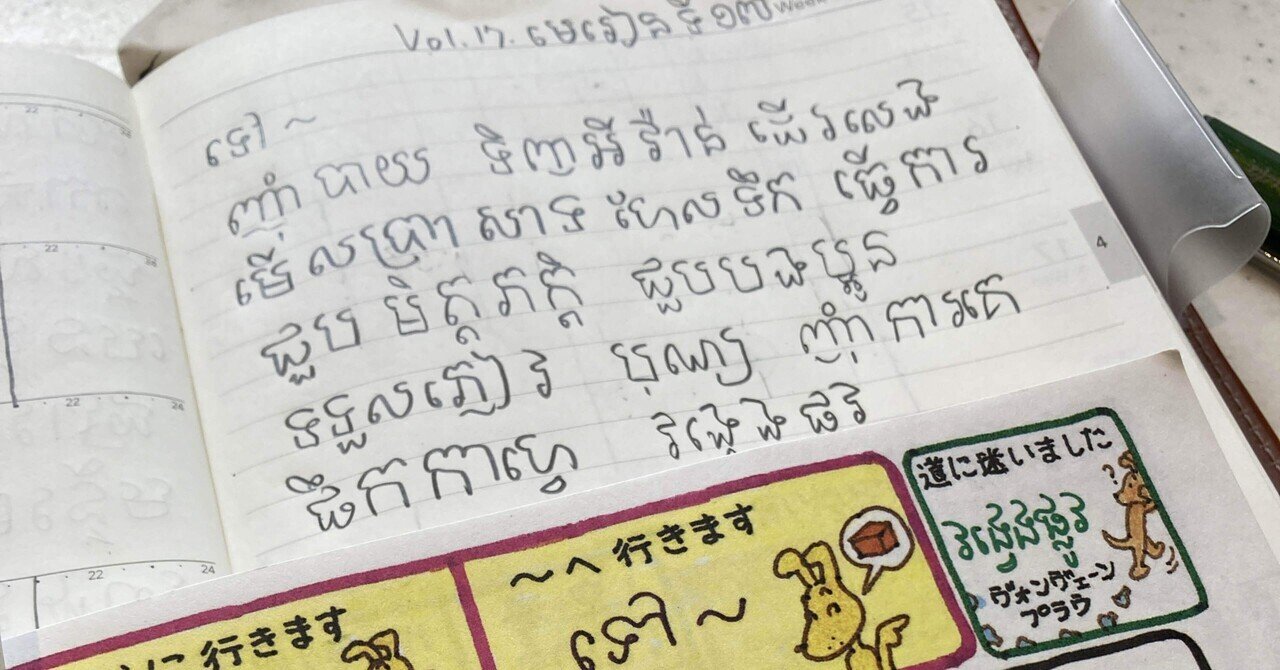 Vol.17. មេរៀនទី១៧
ទៅ ~
ញ៉ាំបាយ ទិញអីវ៉ាន់ ដើរលេង
មើលប្រាសាទ ហែលទឹក ធ្វើការ
ជួបមិត្តភក្តិ ជួបបងប្អូន
ទទួលភ្ញៀវ បុណ្យ ញ៉ាំការគេ
ផឹកកាហ្វេ វង្វេងផ
道に迷いました
វង្វេងផ្លូវ
ヴォンヴェーン
プラウ
～へ行きます
ទៅ ~
に行きます